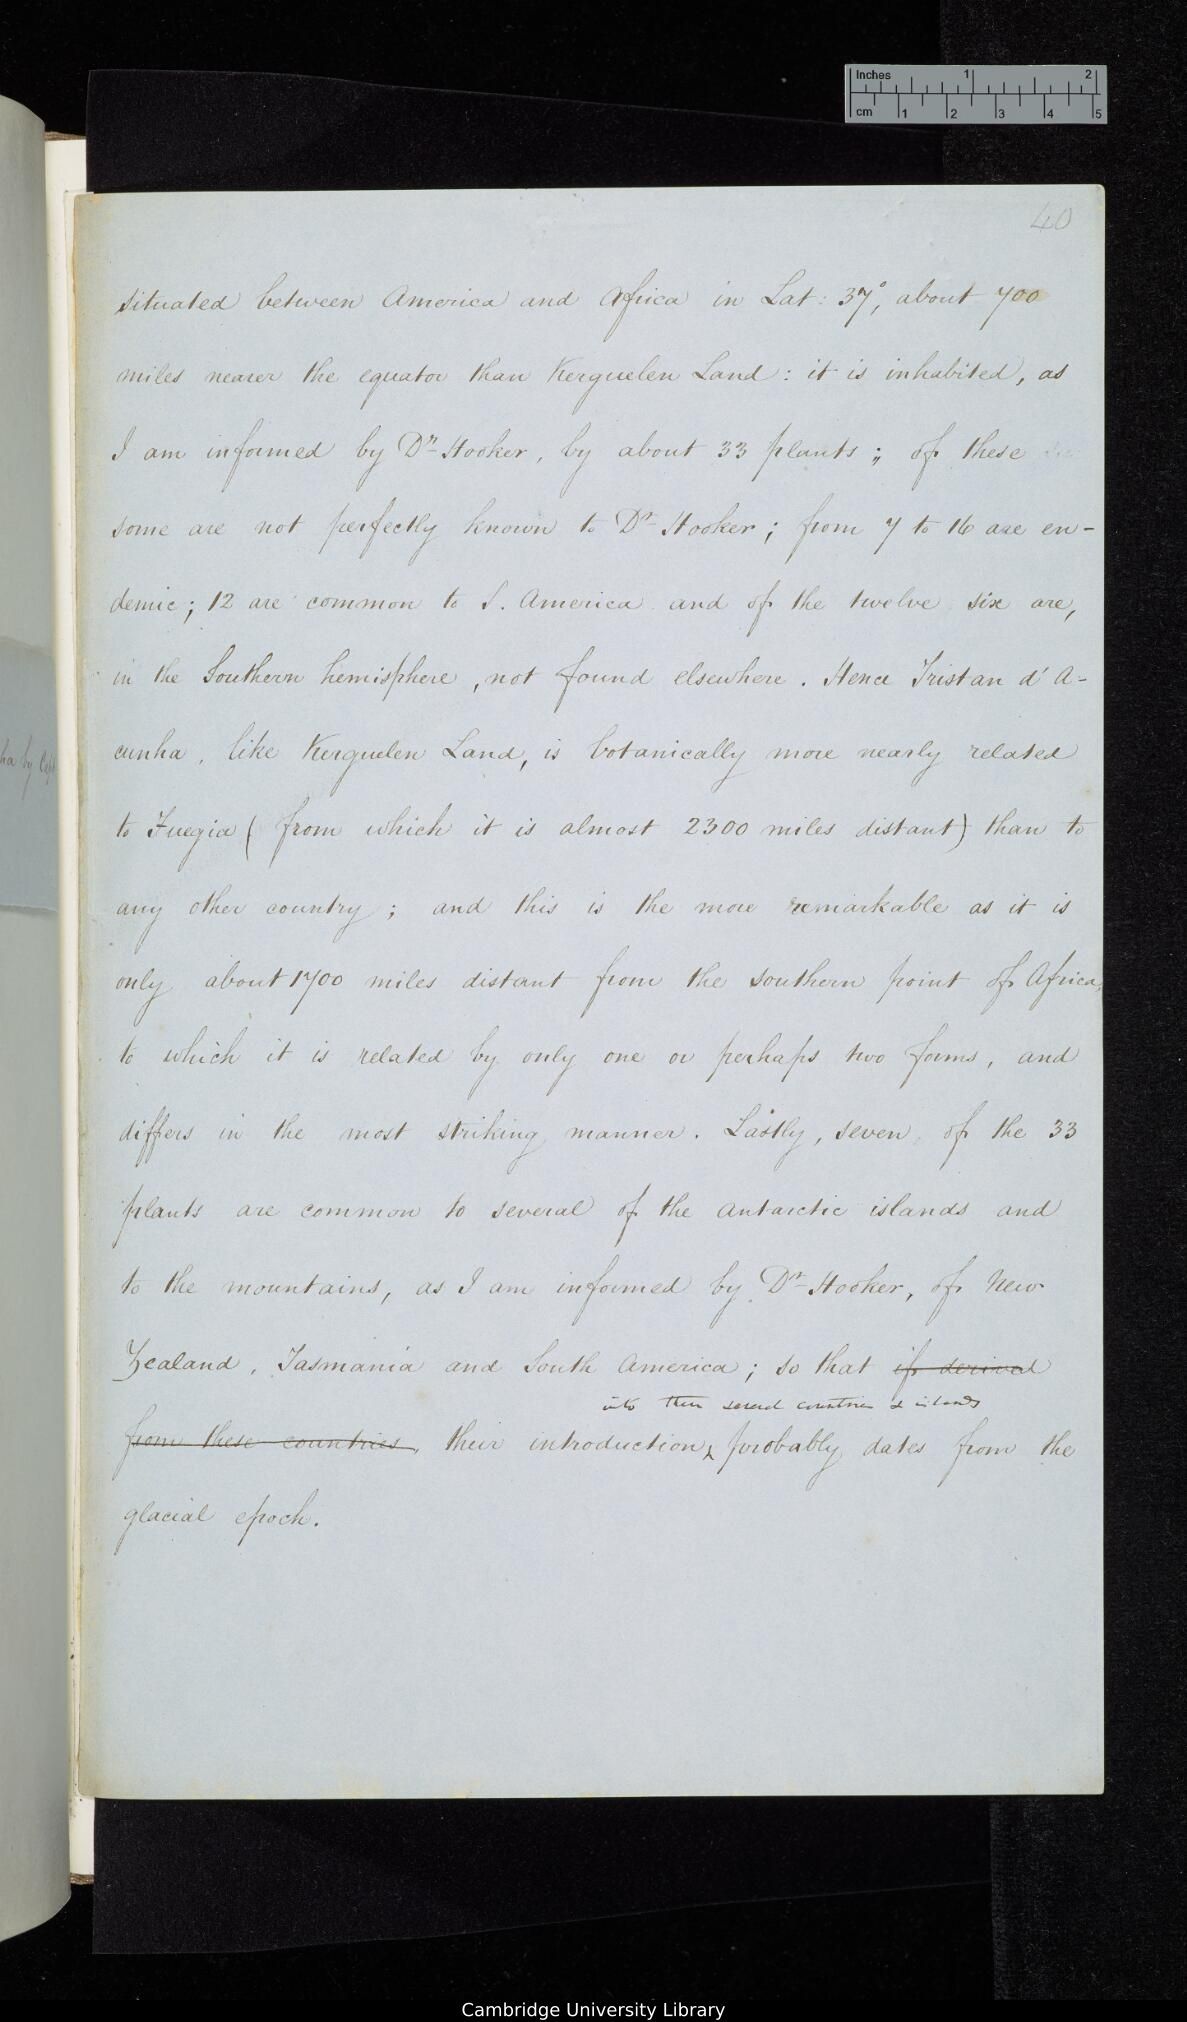 Inches 1 2
cm 1 2 3 4 5
40
situated between America and Africa in Lat: 37°, about 700
miles nearer the equator than Kerguelen Land: it is inhabited, as
I am informed by Dr Hooker, by about 33 plants; of these
some are not perfectly known to Dr Hooker; from 7 to 16 are en-
demic; 12 are common to S. America and of the twelve six are,
in the Southern hemisphere, not found elsewhere. Hence Tristan d'A-
cunha, like Kerguelen Land, is botanically more nearly related
to Fuegia (from which it is almost 2300 miles distant) than to
any other country; and this is the more remarkable as it is
only about 1700 miles distant from the southern point of Africa,
to which it is related by only one or perhaps two forms, and
differs in the most striking manner. Lastly, seven of the 33
plants are common to several of the antarctic islands and
to the mountains, as I am informed by Dr Hooker, of New
Zealand, Tasmania and South America; so that if derived
into these several countries & islands
from these countries, their introduction probably dates from the
glacial epoch.
ha by Capt
Cambridge University Library